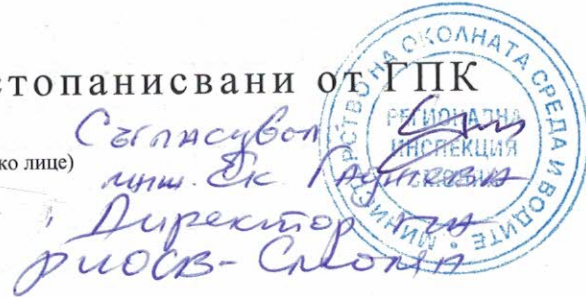 стопанисвани от ГПК
Съгласувал
ко лице)
инж. Ек. Гаджева
Директор на
РИОСВ - Смолян
МИНИСТЕРСТВО НА ОКОЛНАТА СРЕДА И ВОДИТЕ
РЕГИОНАЛНА
ИНСПЕКЦИЯ